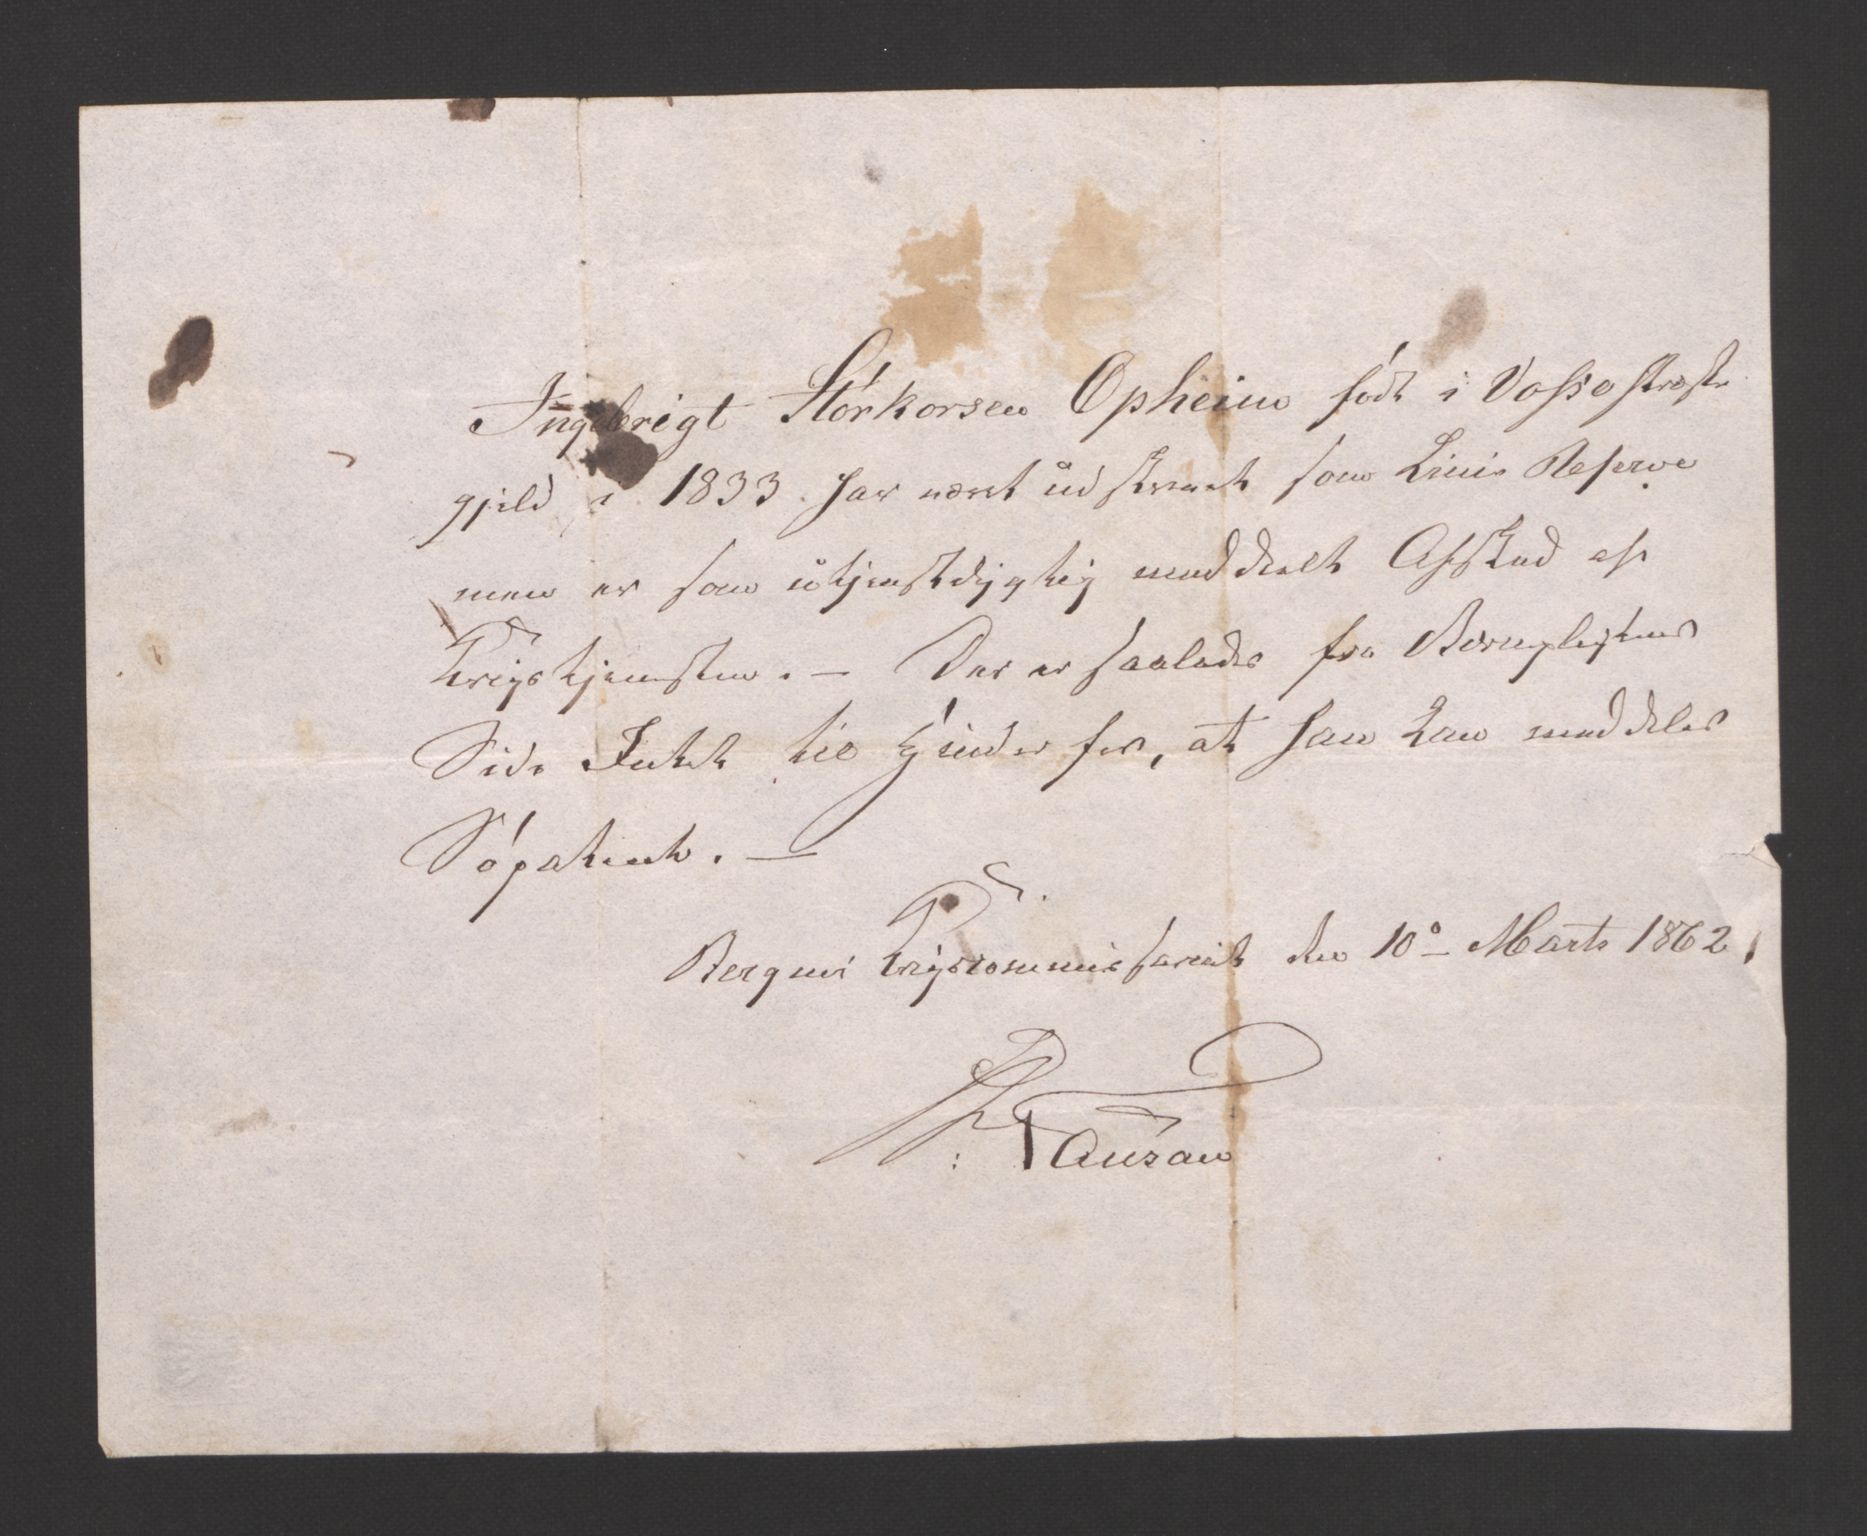 Ingebrigt Storkorsen Opheim født i Vosse Præste
gjeld i 1833 har været udskrevet som Linie Reserve
men er som utjenstdygtig meddeelt Afsked af
Krigstjenesten. — Der er saaledes fra Værnepligtens
Side Intet til Hinder for, at han kan meddeles
Søpatent. —
Bergens Krigscommissariat den 10de Marts 1862